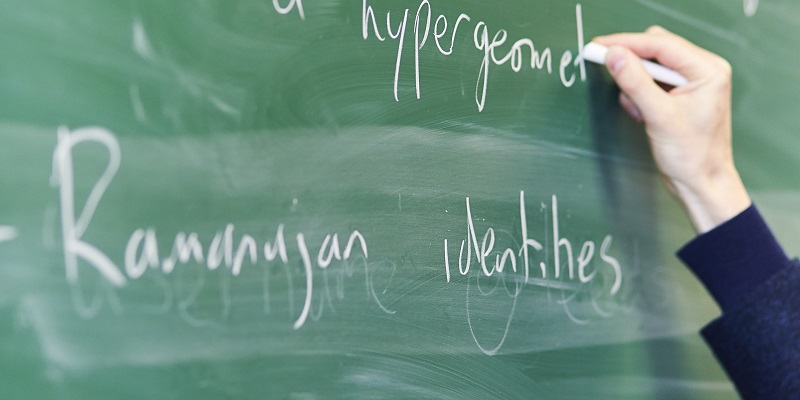 hypergeomet
- Ramanujan identities